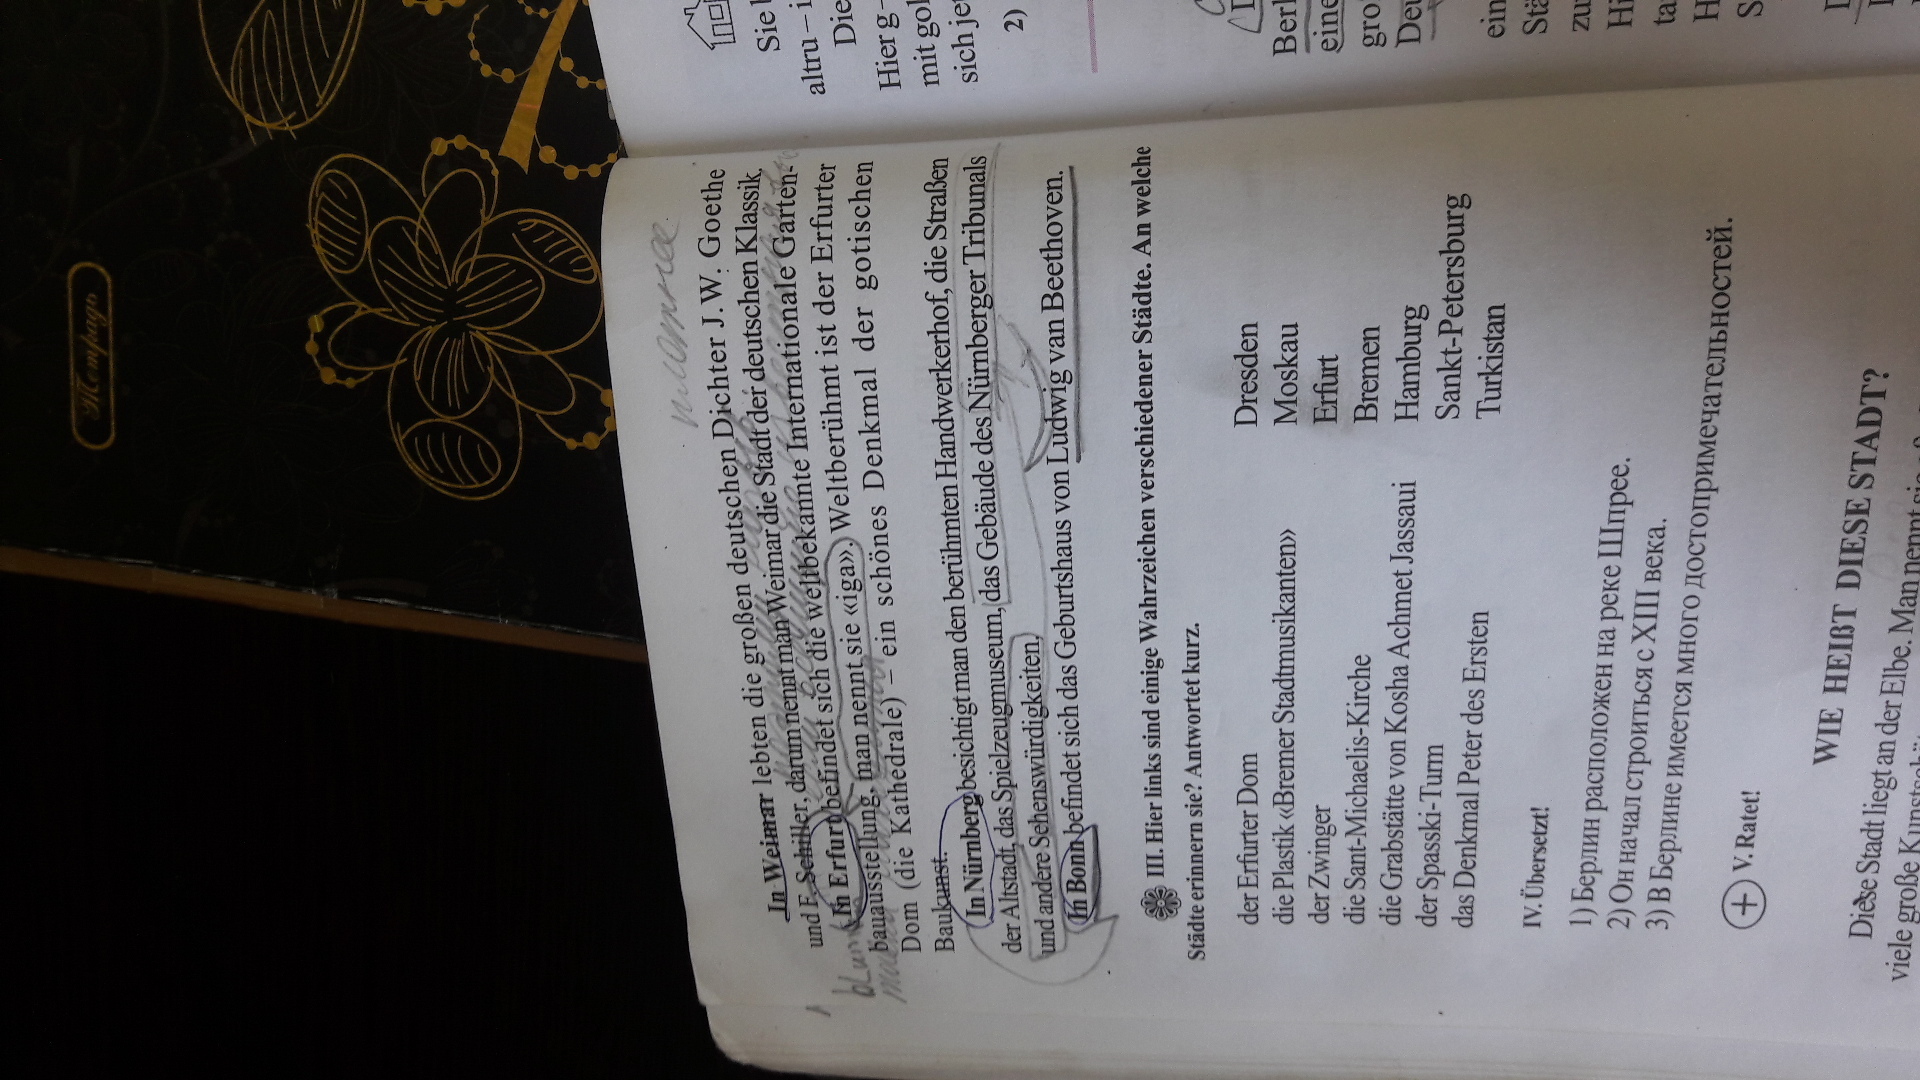 In Weimar lebten die großen deutschen Dichter J. W. Goethe
und F. Schiller, darum nennt man Weimar die Stadt der deutschen Klassik.
In Erfurt befindet sich die weltbekannte Internationale Garten-
bauausstellung, man nennt sie «iga». Weltberühmt ist der Erfurter
Dom (die Kathedrale) – ein schönes Denkmal der gotischen
Baukunst.
In Nürnberg besichtigt man den berühmten Handwerkerhof, die Straßen
der Altstadt, das Spielzeugmuseum, das Gebäude des Nürnberger Tribunals
und andere Sehenswürdigkeiten.
In Bonn befindet sich das Geburtshaus von Ludwig van Beethoven.
III. Hier links sind einige Wahrzeichen verschiedener Städte. An welche
Städte erinnern sie? Antwortet kurz.
der Erfurter Dom
die Plastik «Bremer Stadtmusikanten»
der Zwinger
die Sant-Michaelis-Kirche
die Grabstätte von Kosha Achmet Jassaui
der Spasski-Turm
das Denkmal Peter des Ersten
Dresden
Moskau
Erfurt
Bremen
Hamburg
Sankt-Petersburg
Turkistan
IV. Übersetzt!
1) Берлин расположен на реке Шпрее.
2) Он начал строиться с XIII века.
3) В Берлине имеется много достопримечательностей.
V. Ratet!
WIE HEIßT DIESE STADT?
Diese Stadt liegt an der Elbe. Man nennt sie
viele große
Sie
altru – i
Die
Hier g –
mit gol
sich je
2)
Berl
eine
gro
Deu
ein
Stä
zu
Hi
ta
H
S